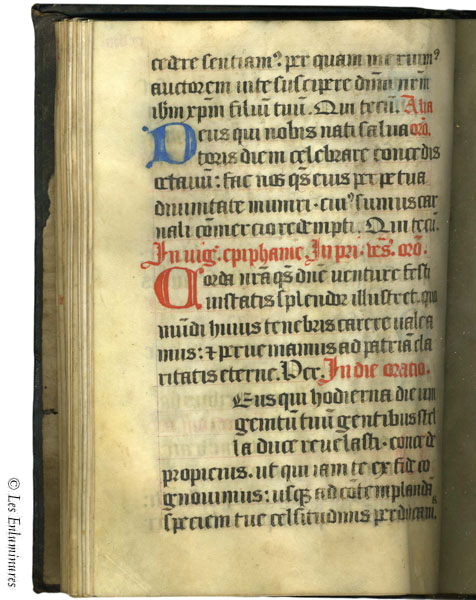 cedere sentiamꝰ. per quam meruimꝰ
auctorem uite suscipere dn̄m nr̄m
ihm xp̄m filiū tuū. Qui tecū. Alia
Deus qui nobis nati salua orō.
toris diem celebrare concedis
octauū: fac nos q̄s eius perpetua
diuinitate muniri · cuiꝰ sumus car
nali cōmercio redempti. Qui tecū.
In vig. epiphanie. In pri. vēs. orō.
Corda nr̄a q̄s dn̄e venture festi
uitatis splendor illustret. quo
mūdi huius tenebris carere ualea
mus: ⁊ perueniamus ad patriā cla
ritatis eterne. Per. In die oratio.
Eus qui hodierna die uni
genitū tuū gentibus stel
la duce reuelasti · concede
propicius. ut qui iam te ex fide co
gnouimus: usq̄ ad cōtemplandā
speciem tue celsitudinis perducam̄.
© Les Enluminures